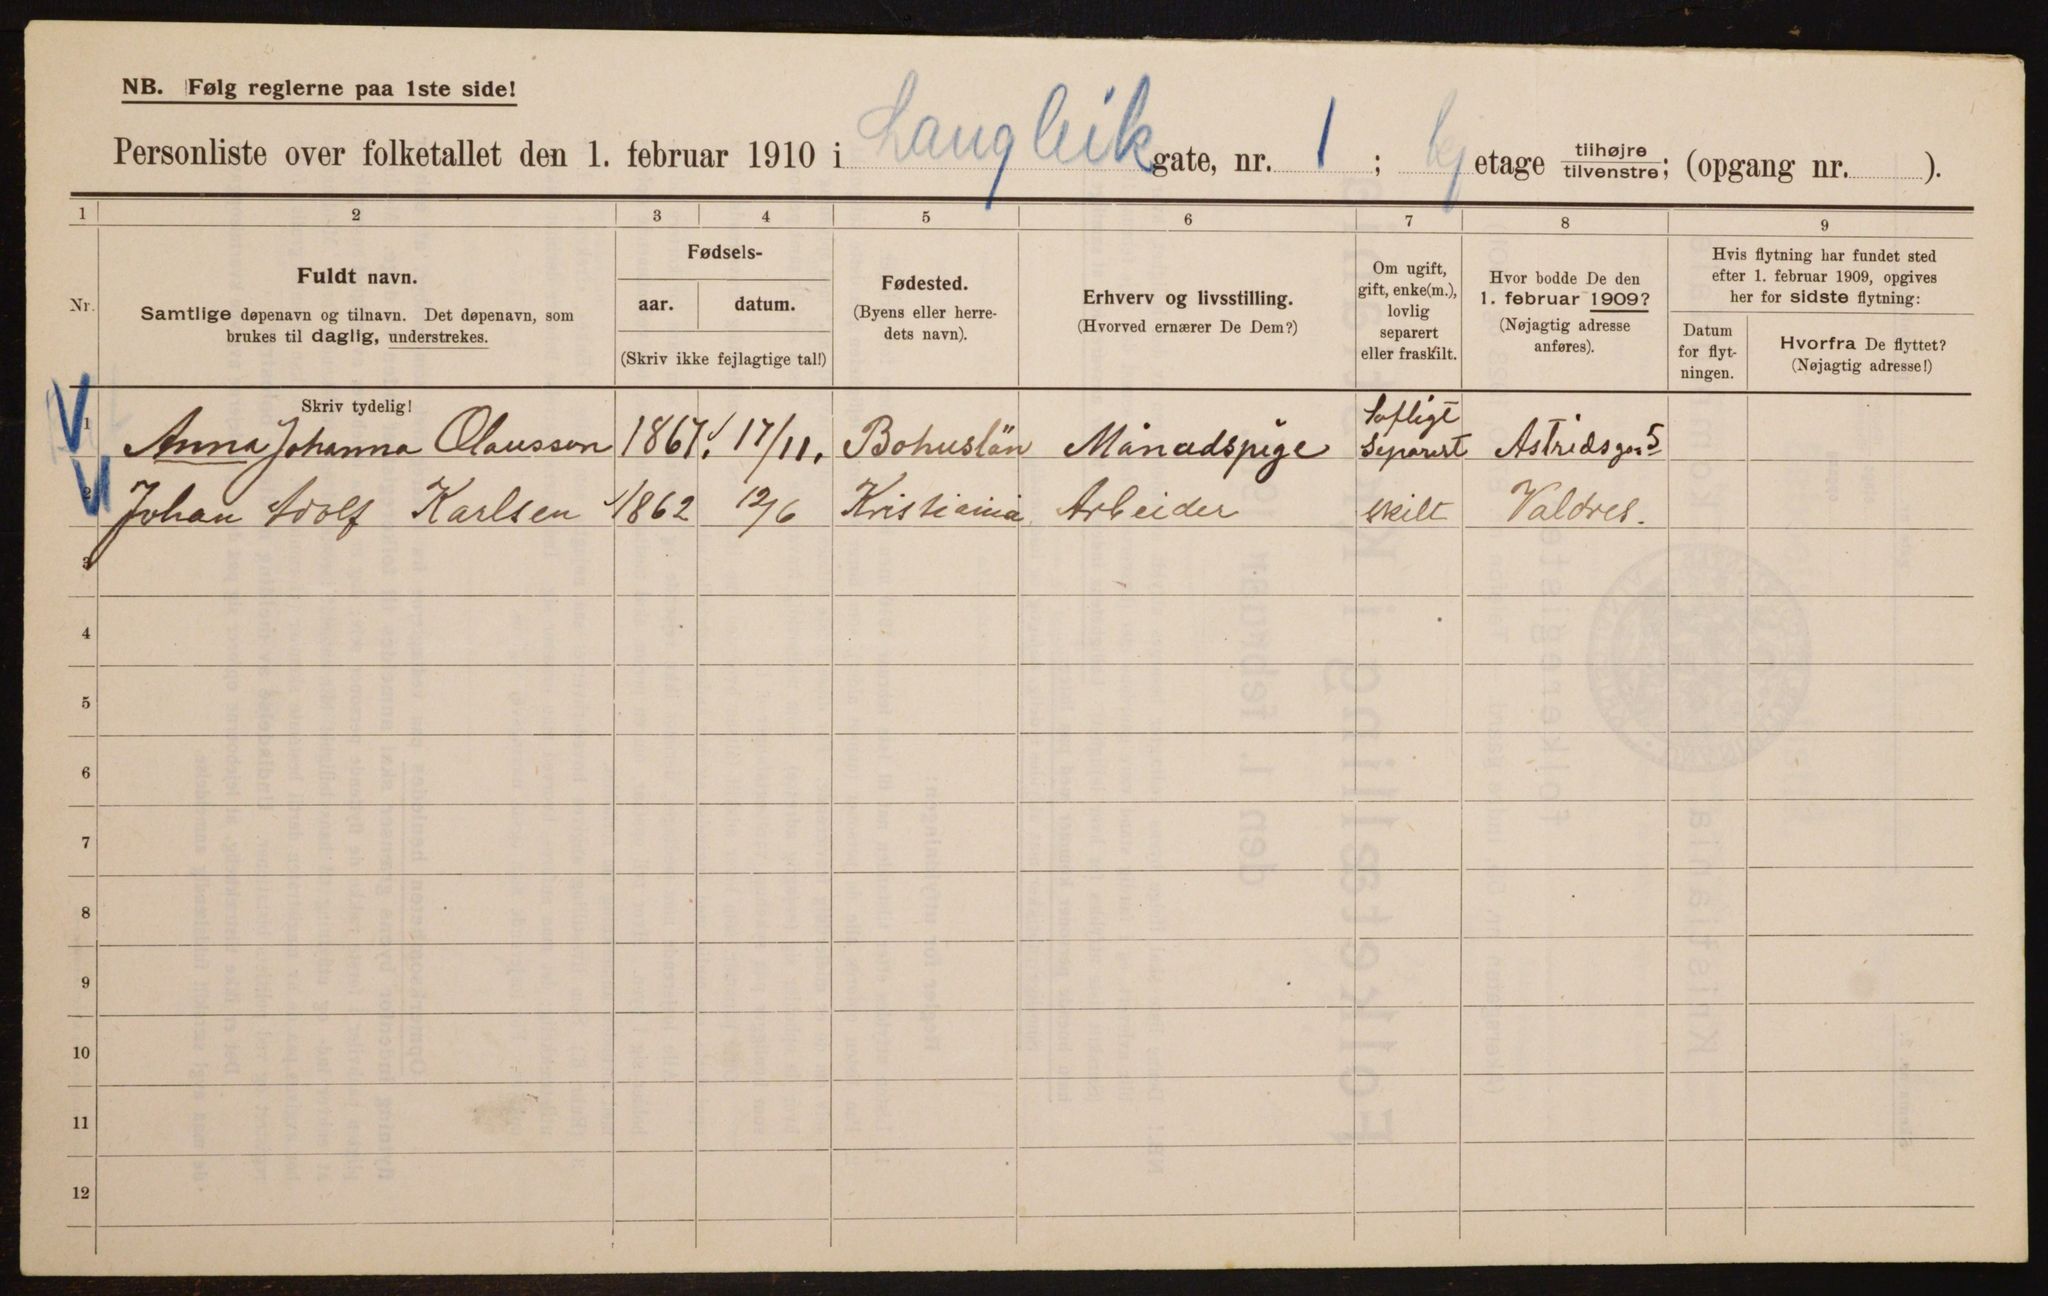 NB. Følg reglerne paa 1ste side!
Personliste over folketallet den 1. februar 1910 i Langleik gate, nr. 1; kj etage tilhøjre/tilvenstre; (opgang nr. ).
1 2 3 4 5 6 7 8 9
Nr.
Fuldt navn.
Samtlige døpenavn og tilnavn. Det døpenavn, som
brukes til daglig, understrekes.
Fødsels-
aar. datum.
(Skriv ikke fejlagtige tal!)
Fødested.
(Byens eller herre-
dets navn).
Erhverv og livsstilling.
(Hvorved ernærer De Dem?)
Om ugift,
gift, enke(m.),
lovlig
separert
eller fraskilt.
Hvor bodde De den
1. februar 1909?
(Nøjagtig adresse
anføres).
Hvis flytning har fundet sted
efter 1. februar 1909, opgives
her for sidste flytning:
Datum
for flyt-
ningen.
Hvorfra De flyttet?
(Nøjagtig adresse!)
Skriv tydelig!
1 Anna Johanna Olausson 1867. 17/11. Bohuslän Månadspige Lofligt Separert Astridsga. 5
2 Johan Adolf Karlsen 1862 12/6 Kristiania Arbeider skilt Valdres.
3
4
5
6
7
8
9
10
11
12